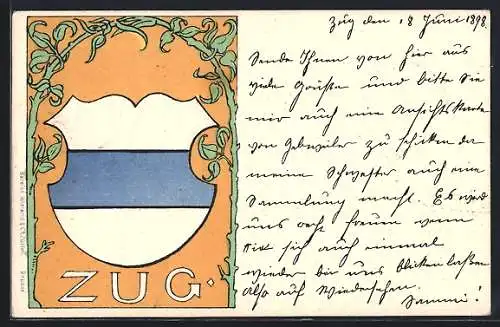 Zug den 18 Juni 1898
Sende Ihnen von hier aus
viele Grüße und bitte Sie
mir auch eine Ansichtskarte
von Gebweiler zu schicken da
meine Schwester auch eine
Sammlung macht. Es wird
uns recht freuen wenn
Sie sich auch einmal
wieder bei uns blicken laßen
also auf Wiedersehen.
ZUG.